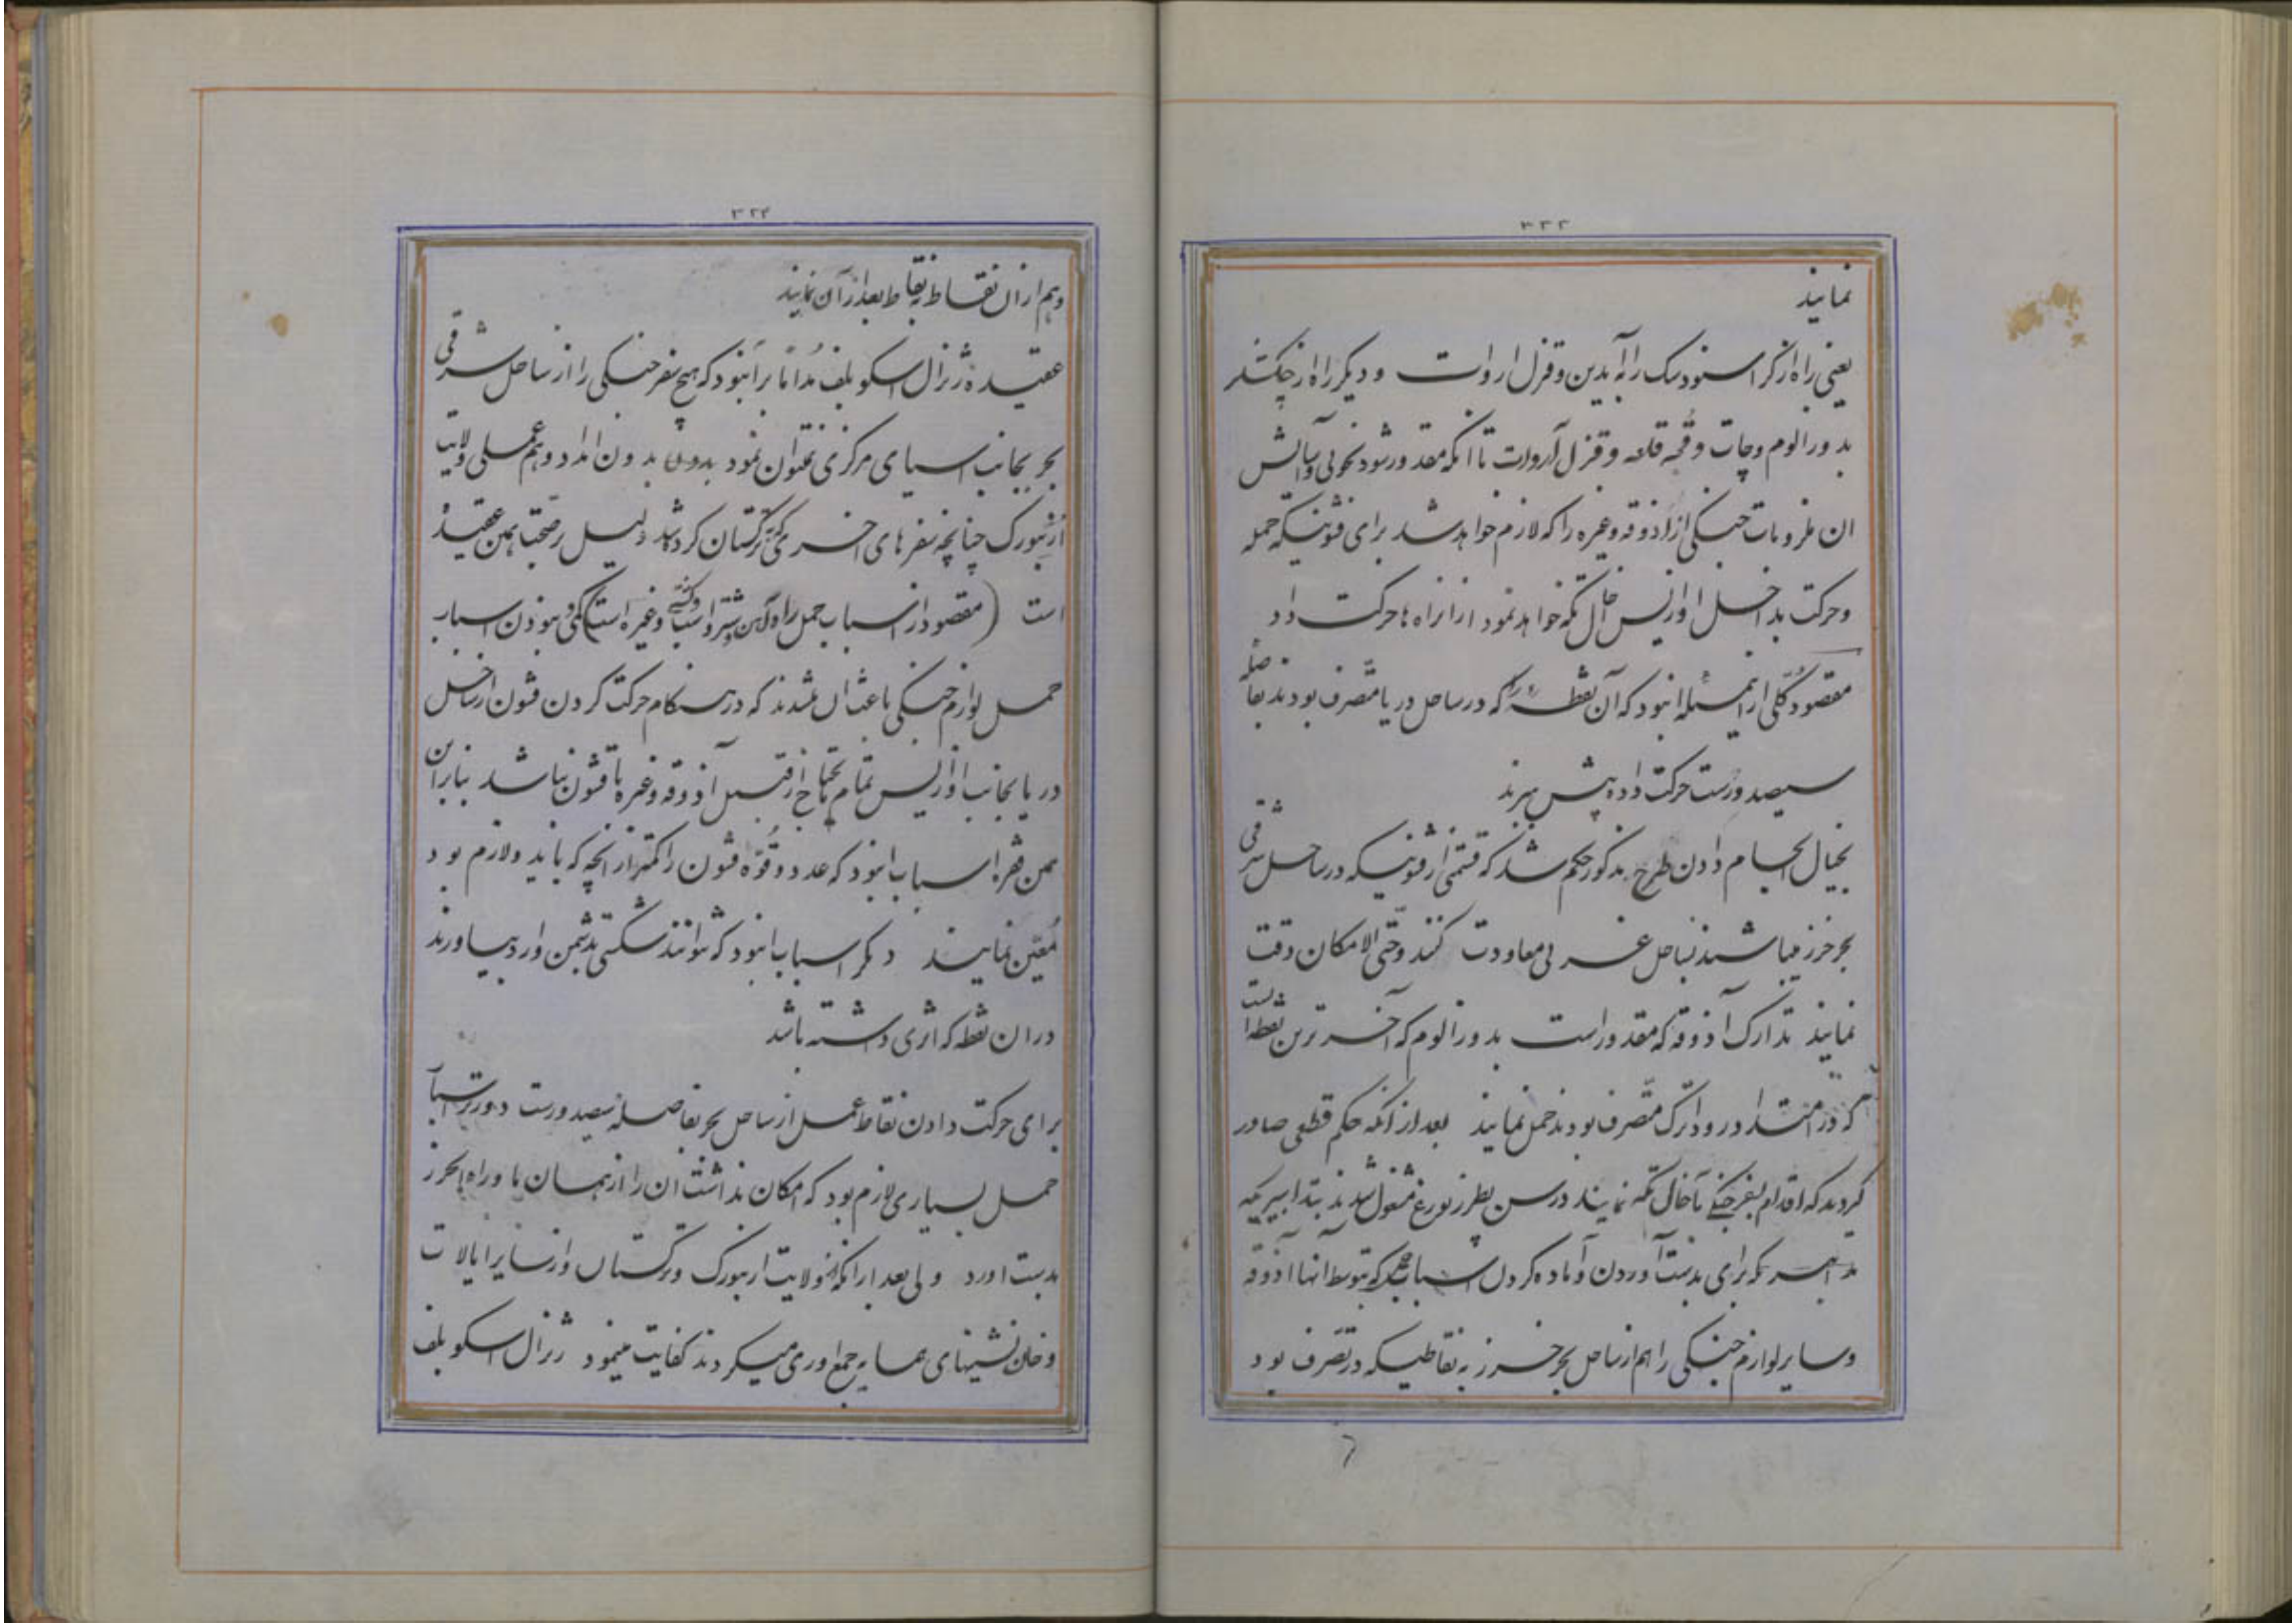 ۳۲۳
نمایند
یعنی راه از کراسنودسک را به آیدین و قزل اروات و دیگر راه از چکشلر
بدورالوم و چات و قلعه و قزل آروات تا انکه مقدور شود بخوبی و آسایش
ان ملزومات جنگی از آذوقه و غیره را که لازم خواهد شد برای قشونیکه حمله
و حرکت بداخل اوازیس اخال تکه خواهد نمود از انراه ها حرکت داد
مقصود کلی از اینمسئله این بود که آن نقطه را که در ساحل دریا متصرف بودند بفاصله
سیصد ورست حرکت داده پیش ببرند
بخیال انجام دادن طرح مذکور حکم شد که قسمتی از قشونیکه در ساحل شرقی
بحر خزر میباشند بساحل غربی معاودت کنند و حتی الامکان دقت
نمایند تدارک آذوقه که مقدور است بدورالوم که آخرترین نقطه ایست
که در امتداد رود اترک متصرف بودند حمل نمایند بعد از انکه حکم قطعی صادر
گردید که اقدام بسفر جنگی باخال تکه نمایند در سن پطرزبورغ مشغول شدند بتدابیریکه
که برای بدست آوردن و آماده کردن اسباب حمل که بتوسط آنها آذوقه
و سایر لوازم جنگی را هم از ساحل بحر خزر به نقاطیکه در تصرف بود
۳۲۴
و هم از ان نقاط به نقاط بعد از آن نمایند
عقیده ژنرال اسکوبلف مدأما بر این بود که هیچ سفر جنگی را از ساحل شرقی
بحر بجانب اسیای مرکزی نمیتوان نمود بدون بدون امداد و همعملی ولایت
ارنبورک چنانچه سفرهای اخری که بترکستان کرده شد دلیل بر صحت همین عقیده
است (مقصود از اسباب حمل راه آهن و شتر و اسب و کشتی و غیره است) کمی و نبودن اسباب
حمل لوازم جنگی باعث ان شدند که در هنگام حرکت کردن قشون از ساحل
دریا بجانب اوازیس تمام مایحتاج از قبیل آذوقه و غیره با قشون نباشد بنابراین
همین فقره اسباب این بود که عدد و قوّه قشون را کمتر از انچه که باید و لازم بود
مُعیّن نمایند دیگر اسباب این بود که نتوانند شکستی بدشمن وارد بیاورند
در ان نقطه که اثری داشته باشد
برای حرکت دادن نقاط عمل از ساحل بحر بفاصله سیصد ورست دورتر اسباب
حمل بسیاری لازم بود که امکان نداشت ان را از همان ماوراء بحر خزر
بدست اورد ولی بعد از انکه از ولایت ارنبورک و ترکستان و از سایر ایالات
و خان نشینهای همسایه جمع اوری میکردند کفایت مینمود ژنرال اسکوبلف